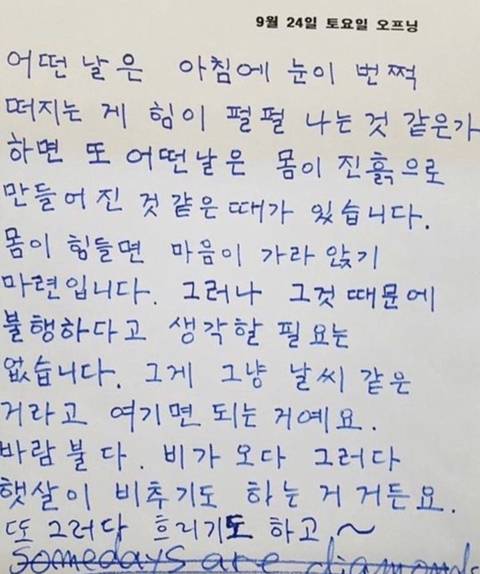 9월 24일 토요일 오프닝
어떤 날은 아침에 눈이 번쩍
떠지는 게 힘이 펄펄 나는 것 같은가
하면 또 어떤날은 몸이 진흙으로
만들어 진 것 같은 때가 있습니다.
몸이 힘들면 마음이 가라 앉기
마련입니다. 그러나 그것 때문에
불행하다고 생각할 필요는
없습니다. 그게 그냥 날씨 같은
거라고 여기면 되는 거예요.
바람 불다. 비가 오다 그러다
햇살이 비추기도 하는 거 거든요.
또 그러다 흐리기도 하고 ~
Somedays are diamonds